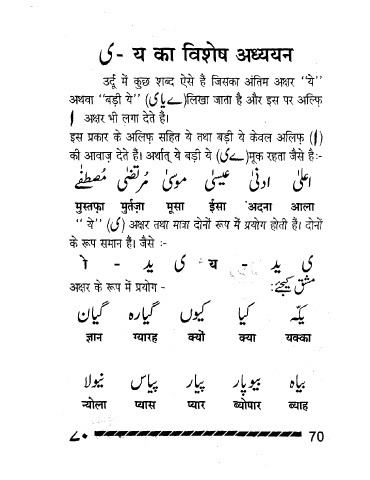 ی - य का विशेष अध्ययन
उर्दू में कुछ शब्द ऐसे हैं जिसका अंतिम अक्षर ''ये''
अथवा ''बड़ी ये'' (ی یا ے) लिखा जाता है और इस पर अल्फ़ि
ا अक्षर भी लगा देते हैं।
इस प्रकार के अलिफ़ सहित ये तथा बड़ी ये केवल अलिफ़ (ا)
की आवाज़ देते हैं। अर्थात् ये बड़ी ये (ے ی) मूक रहता जैसे है:-
اعلیٰ ادنیٰ عیسیٰ موسیٰ مرتضیٰ مصطفےٰ
मुस्तफ़ा मुर्तज़ा मूसा ईसा अदना आला
'' ये'' (ی) अक्षर तथा मात्रा दोनों रूप में प्रयोग होती हैं। दोनों
के रूप समान हैं। जैसे :-
ی ید - य ی ید - ो
अक्षर के रूप में प्रयोग - مشق کیجئے:
یکّہ کیا کیوں گیارہ گیان
ज्ञान ग्यारह क्यों क्या यक्का
بیاہ بیوپار پیار پیاس نیولا
न्योला प्यास प्यार ब्योपार ब्याह
۷۰ 70